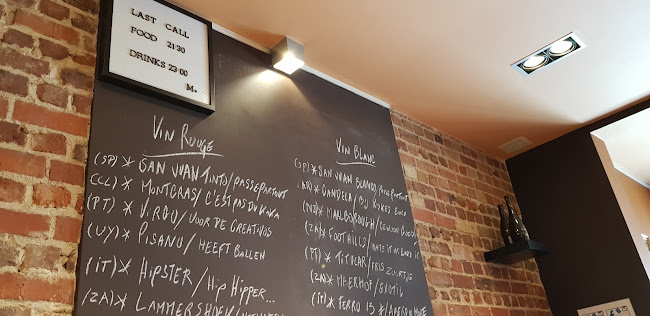 LAST CALL
FOOD 21:30
DRINKS 23:00
M.
VIN ROUGE
(SP)* SAN JUAN TINTO/PASSEPARTOUT
(CL)* MONTGRAS/C'EST PAS DU
(PT)* VIRGO/VOOR DE CREATIVOS
(UY)* PISANO/HEEFT BALLEN
(IT)* HIPSTER/HIP HIPPER...
(ZA)* LAMMERSHOEK/
VIN BLANC
(SP)* SAN JUAN BLANCO/PASSEPARTOUT
(AR)* CANDELA/
(NZ)* MARLBOROUGH/
(ZA)* FOOTHILLS/HATE IT OR LOVE IT
(PT)* TITULAR/FRIS ZUURTJE
(ZA)* MEERHOF/EXOTIC
(IT)* FERRO 13/